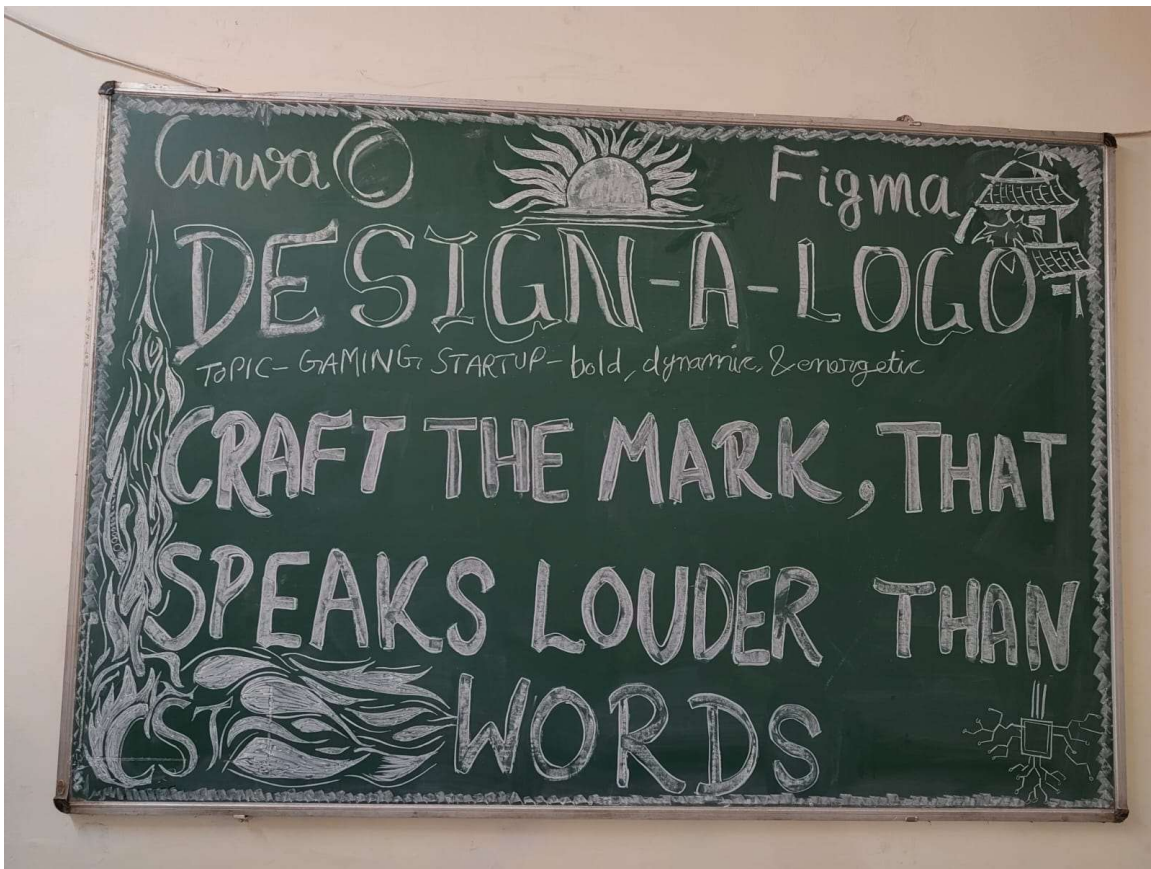 Canva C Figma
DESIGN-A-LOGO
TOPIC- GAMING STARTUP - bold, dynamic, & energetic
CRAFT THE MARK, THAT
SPEAKS LOUDER THAN
WORDS
CST